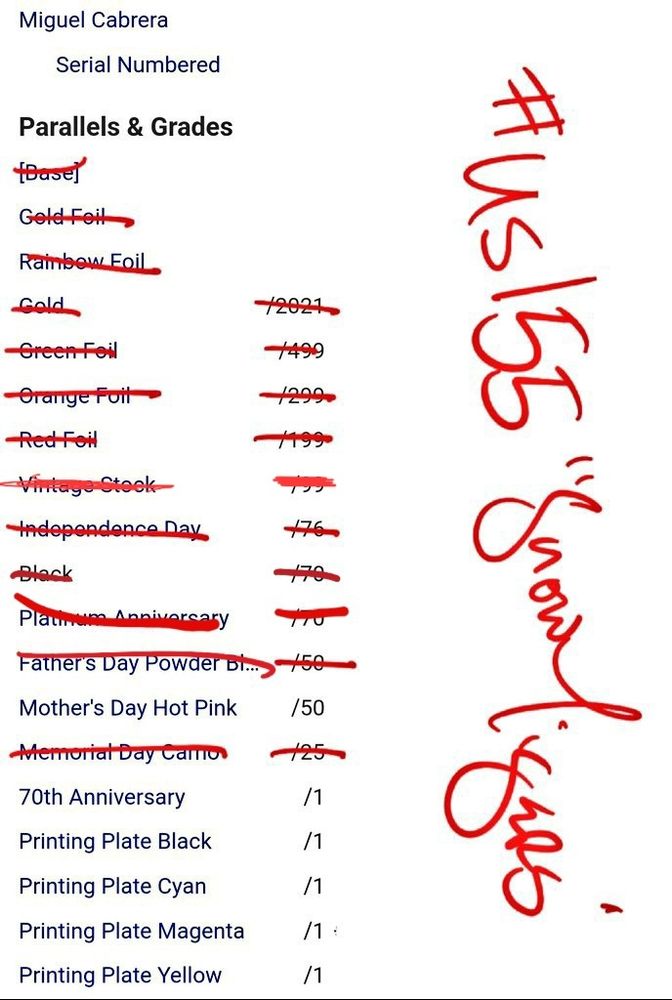 Miguel Cabrera
Serial Numbered
Parallels & Grades
[Base]
Gold Foil
Rainbow Foil
Gold /2021
Green Foil /499
Orange Foil /299
Red Foil /199
Vintage Stock /99
Independence Day /76
Black /70
Platinum Anniversary /70
Father's Day Powder Bl... /50
Mother's Day Hot Pink /50
Memorial Day Camo /25
70th Anniversary /1
Printing Plate Black /1
Printing Plate Cyan /1
Printing Plate Magenta /1
Printing Plate Yellow /1
#US155
"Snow